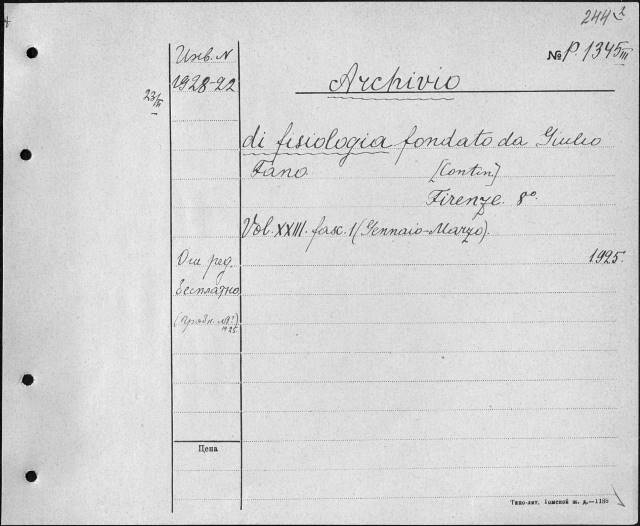 244 2
№ P. 1345 III
Инв. N
1928-22
23/III
Archivio
di fisiologia fondato da Giulio
Fano [Contin]
Firenze. 8º.
Vol. XXIII. fasc. 1 (Gennaio-Marzo).
1925.
От ред.
Бесплатно
(пробн. №?)
1925
Цена
Типо-лит. Томской ж. д.—1188